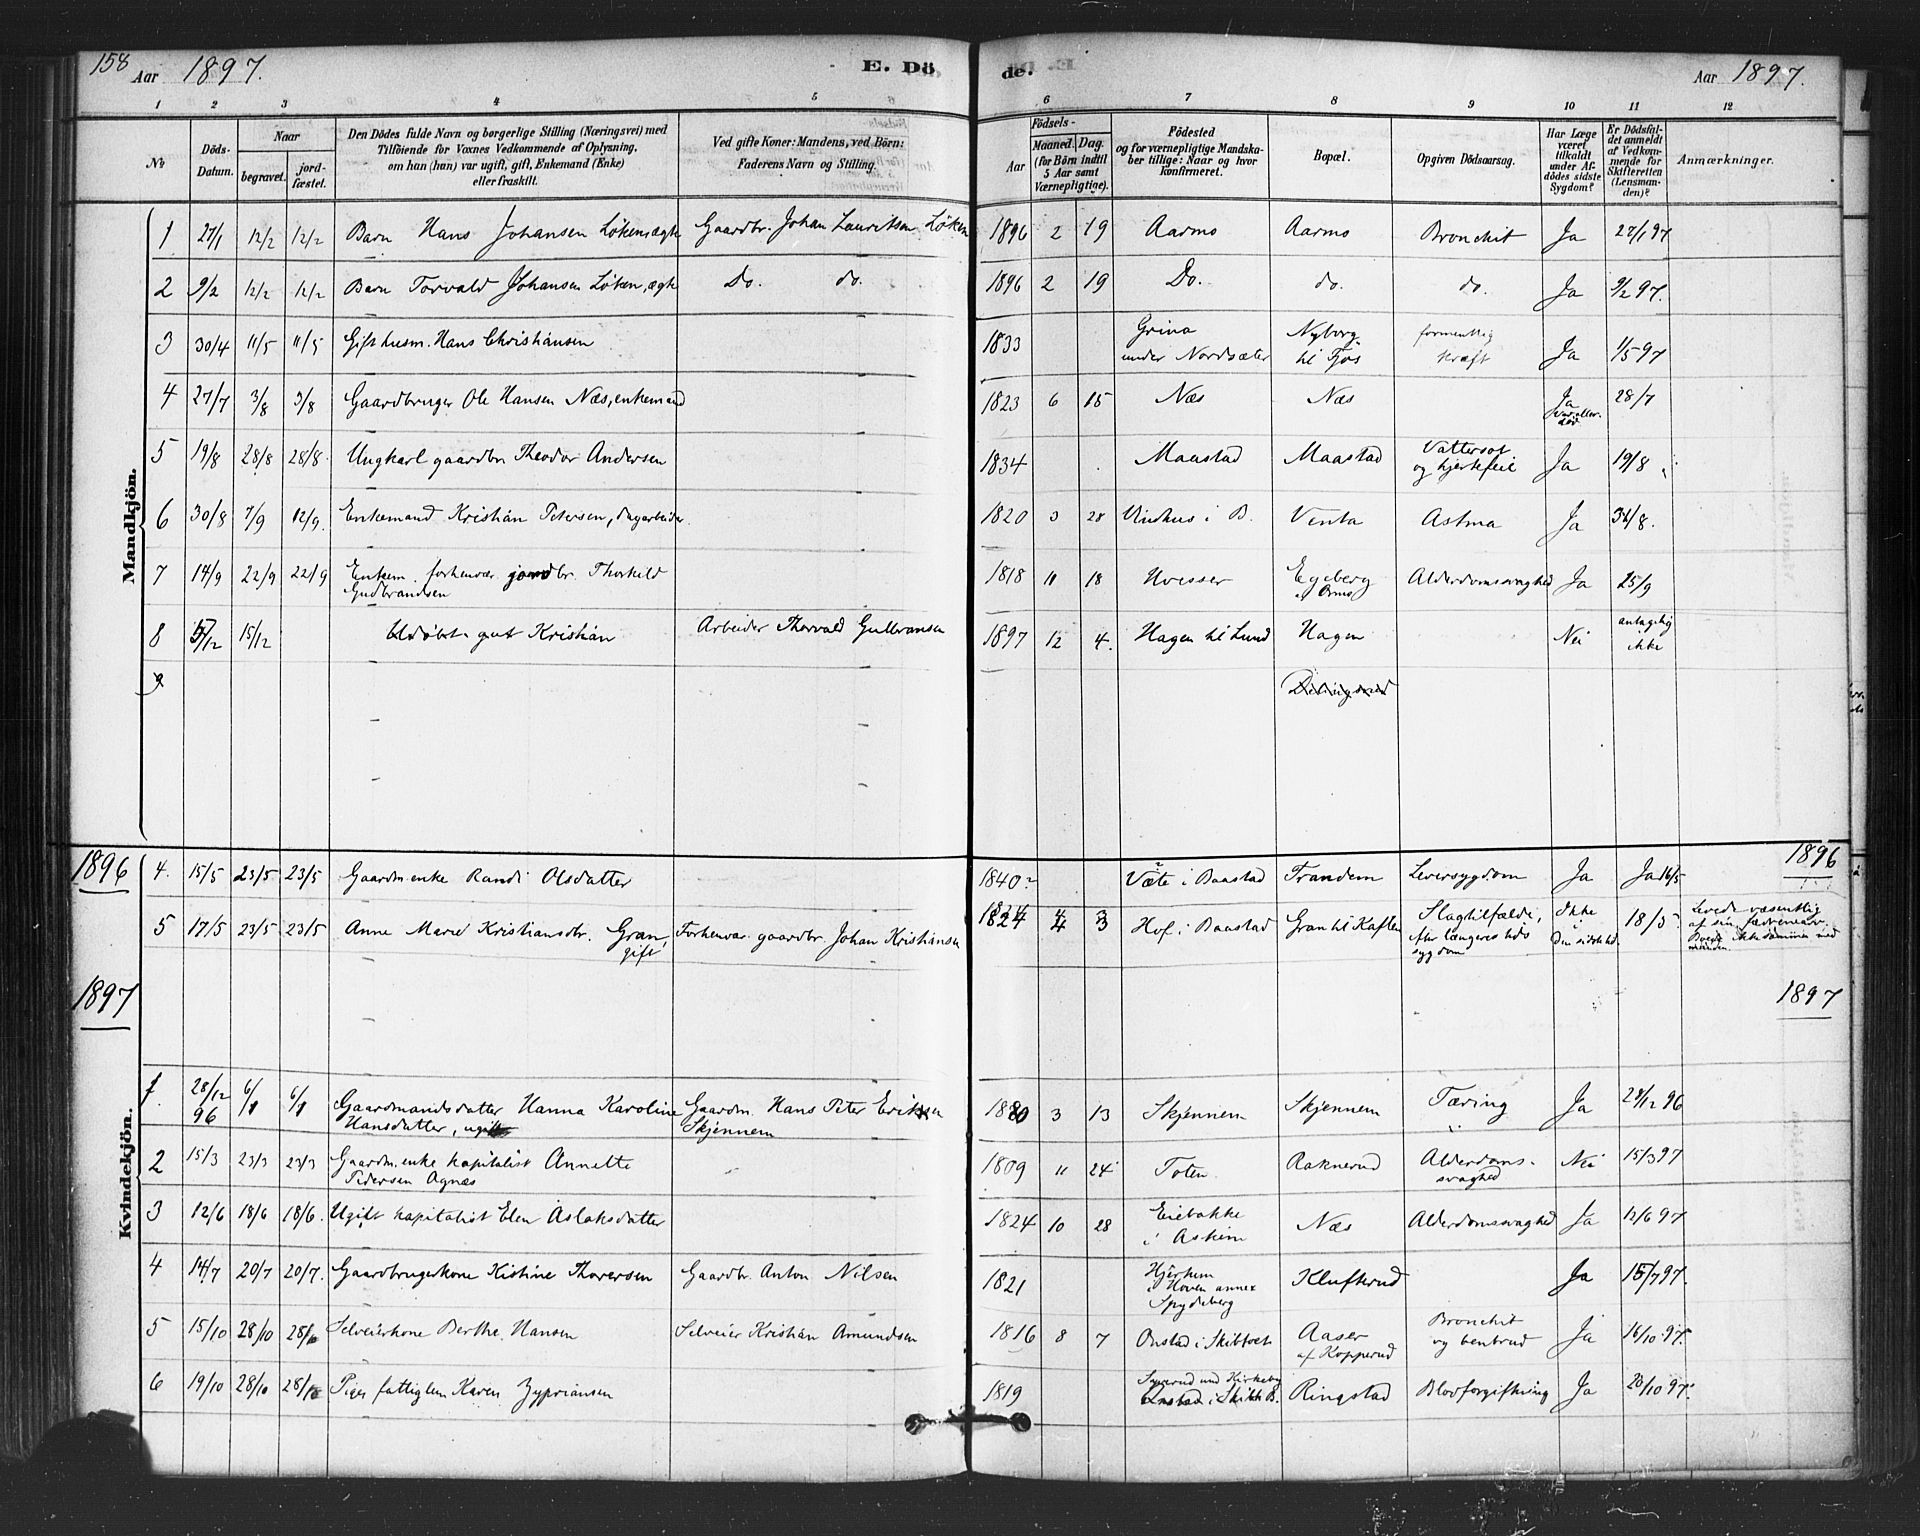 158 Aar 1897. E. Dö
de. Aar 1897.
1 2 3 4 5 6 7 8 9 10 11 12
No Döds-Datum. Naar begravet. jordfæstet. Den Dödes fulde Navn og borgerlige Stilling (Næringsvei) med Tilföiende for Voxnes Vedkommende af Oplysning, om han (hun) var ugift, gift, Enkemand (Enke) eller fraskilt. Ved gifte Koner: Mandens, ved Börn: Faderens Navn og Stilling. Födsels- Aar Maaned. Dag. (for Börn indtil 5 Aar samt Værnepligtige). Födested og for værnepligtige Mandskaber tillige: Naar og hvor konfirmeret. Bopæl. Opgiven Dödsaarsag. Har Læge været tilkaldt under Afdödes sidste Sygdom? Er Dödsfaldet anmeldt af Vedkommende for Skifteretten (Lensmanden)? Anmærkninger.
Mandkjön.
1 27/1 12/2 12/2 Barn Hans Johansen Löken, ægte Gaardbr. Johan Lauritsen Löken 1896 2 19 Aarmo Aarmo Bronchit Ja 27/1 97
2 9/2 12/2 12/2 Barn Torvald Johansen Löken, ægte Do. do. 1896 2 19 Do. do. do. Ja 9/2 97.
3 30/4 11/5 11/5 Gift husm. Hans Christiansen 1833 Grina under Nordsæter Nyborg til Fjøs formentlig kræft Ja 1/5 97
4 27/7 3/8 3/8 Gaardbruger Ole Hansen Næs, enkemand 1823 6 15 Næs Næs Ja 28/7
5 19/8 28/8 28/8. Ungkarl gaardbr. Theodor Andersen 1834 Maastad Maastad Vattersot og hjertefeil Ja 19/8
6 30/8 7/9 12/9. Enkemand Kristian Petersen, dagarbeider 1820 3 28 Vindhus i B. Venta Astma Ja 31/8.
7 14/9 22/9 22/9 Enkem. forhenvær. gaardbr. Thorkild Gudbrandsen 1818 11 18 Hvesser Egeberg af Ormo Alderdomssvaghed Ja 25/9
8 5/12 15/12 Udøbt gut Kristian Arbeider Thorvald Gulbransen 1897 12 4. Hagen til Lund Hagen Nei antagelig ikke
9
1896 4. 15/5 23/5 23/5 Gaardm.enke Randi Olsdatter 1840? Væte i Baastad Trandem Leversygdom Ja Ja 16/5 1896
5 17/5 23/5 23/5 Anne Marie Kristiansdtr. Gran, gift Forhenvær. gaardbr. Johan Kristiansen 1824 4 3 Hof i Baastad Gran til Kaften Slagtilfælde, efter længeres tids sygdom Ikke i den sidste tid 18/5 Levede væsentlig af sin Boede ikke sammen med manden.
1897 1897
Kvindekjön.
1. 28/12 96 6/1 6/1 Gaardmandsdatter Hanna Karoline Hansdatter, ugift Gaardm. Hans Peter Eriksen Skjennem 1880 3 13 Skjennem Skjennem Tæring Ja 29/12 96
2 15/3 23/3 23/3 Gaardm.enke kapitalist Annette Pedersen Agnæs 1809 11 24 Toten Raknerud Alderdomssvaghed Nei 15/3 97
3 12/6 18/6 18/6. Ugift kapitalist Elen Aslaksdatter 1824 10 28 Eiebakke i Askim Næs Alderdomssvaghed Ja 12/6 97
4 14/7 20/7 20/7. Gaardbrugerkone Kistine Thoresen Gaardbr. Anton Nilsen 1821 Hjerkem i Hoven annex Spydeberg Klufterud Ja 15/7 97.
5 15/10 28/10 28/10 Selveierkone Berthe Hansen Selveier Kristian Amundsen 1816 8 7 Onstad i Skibtvet Aaser af Kopperud Bronchit og benbrud Ja 16/10 97.
6 19/10 28/10 28/10 Pige, fattiglem Karen Zypriansen 1819 Ringstad Blodforgiftning Ja 20/10 97.